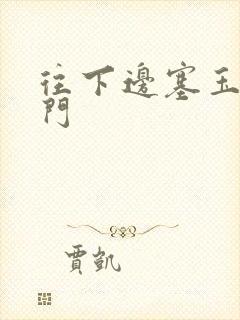 往下邊塞玉
門
賈凱